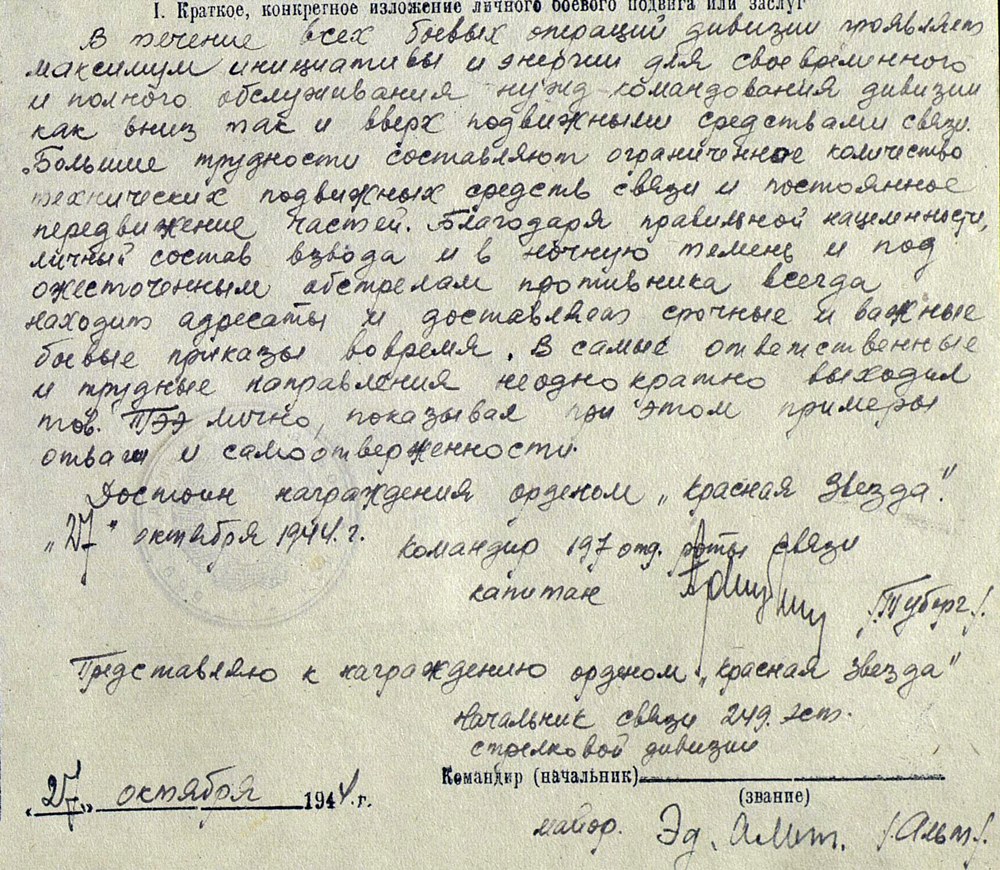 I. Краткое, конкретное изложение личного боевого подвига или заслуг
В течение всех боевых операций дивизии проявляет
максимум инициативы и энергии для своевременного
и полного обслуживания нужд командования дивизии
как вниз так и вверх подвижными средствами связи.
Большие трудности составляют ограниченное количество
технических подвижных средств связи и постоянное
передвижение частей. Благодаря правильной нацеленности,
личный состав взвода и в ночную темень и под
ожесточенным обстрелам противника всегда
находит адресаты и доставляет срочные и важные
боевые приказы вовремя. В самые ответственные
и трудные направления неоднократно выходил
тов. Тээ лично, показывая при этом примеры
отваги и самоотверженности.
Достоин награждения орденом „Красная Звезда".
„27" октября 1944 г.
Командир 197 отд. роты связи
капитан /Туберг/.
Представляю к награждению орденом „Красная Звезда"
Начальник связи 249. эст.
стрелковой дивизии
Командир (начальник)
(звание)
„27" октября 1944 г.
майор. Эд. Альт. /Альт/.